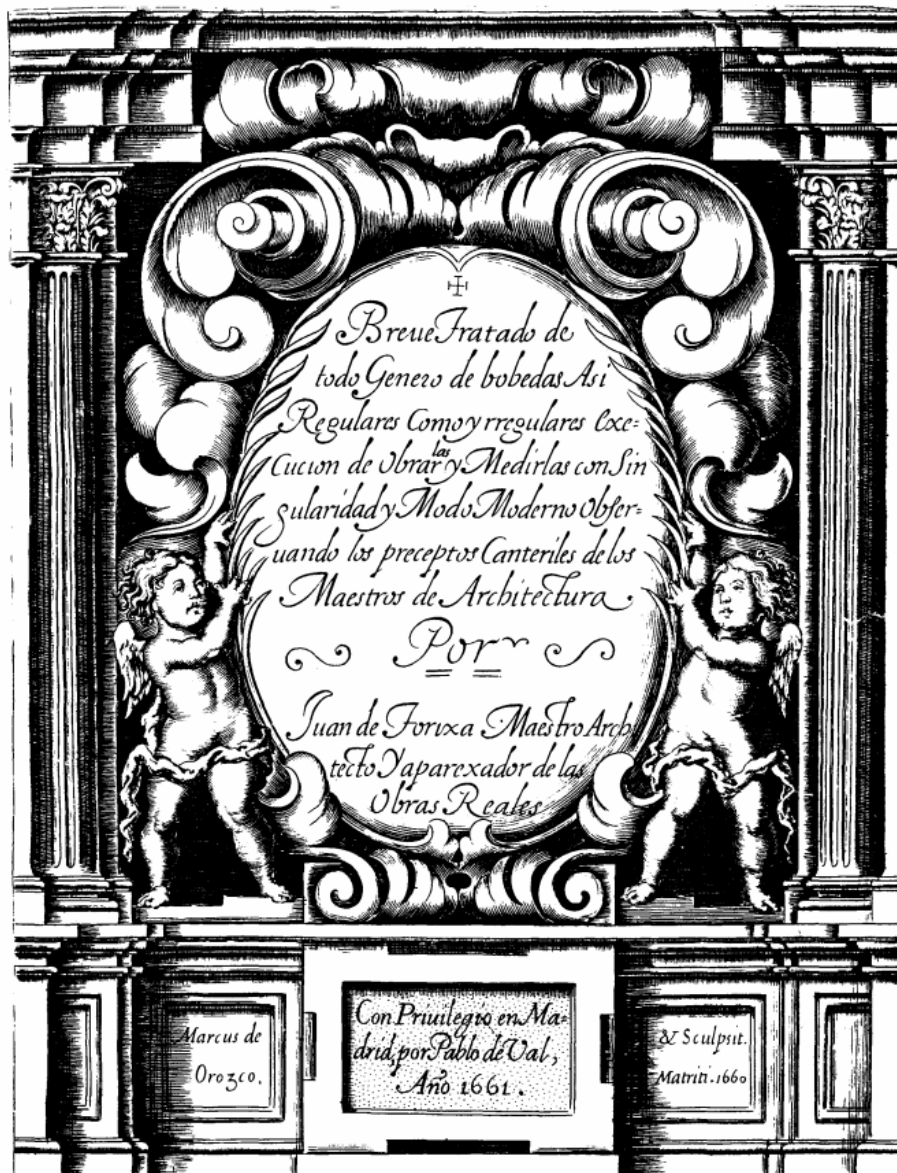 Breue Tratado de
todo Genero de bobedas Asi
Regulares Como yrregulares Exe=
Cucion de obrarlas y Medirlas con Sin
gularidad y Modo Moderno Obser=
uando los preceptos Canteriles de los
Maestros de Architectura.
Por
Juan de Torixa Maestro Archi
tecto Y aparexador de las
Obras Reales
Marcus de
Orozco.
Con Priuilegio en Ma=
drid, por Pablo de Val,
Año 1661.
& Sculpsit.
Matriti. 1660